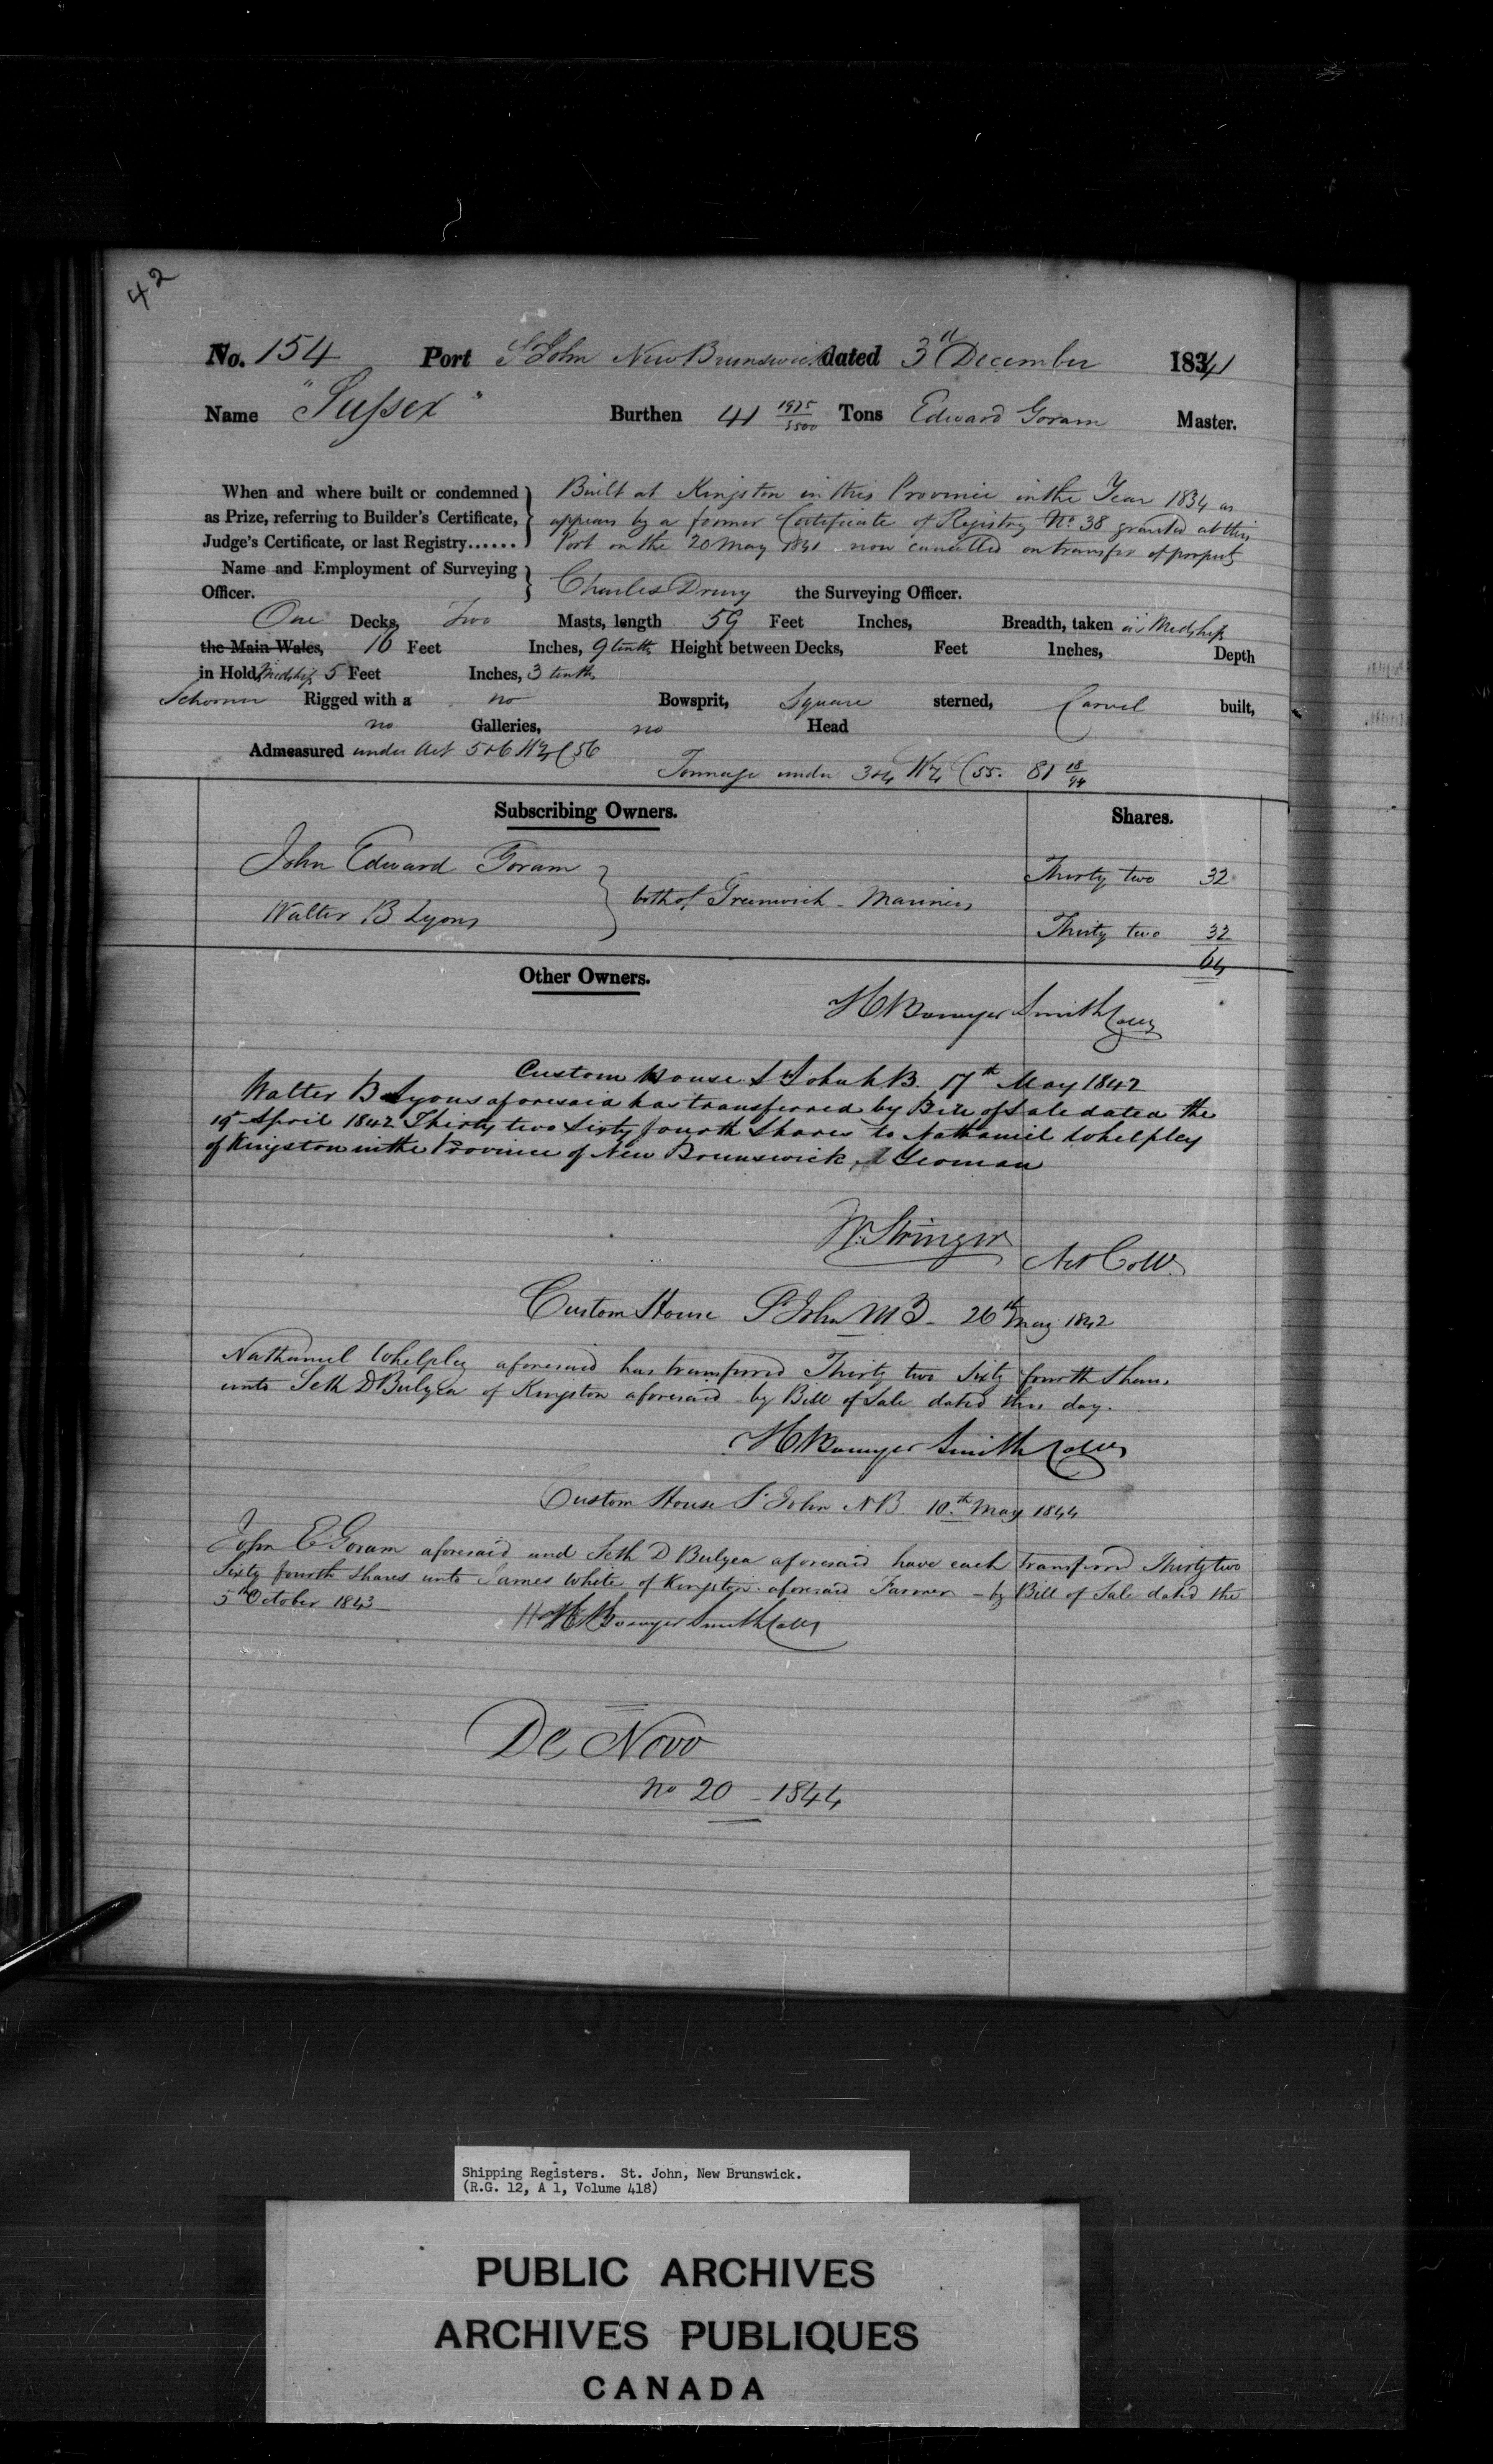 42
No. 154 Port St John New Brunswick dated 3d December 1841
Name "Sussex" Burthen 41 1975/3500 Tons Edward Goram Master.
When and where built or condemned as Prize, referring to Builder's Certificate, Judge's Certificate, or last Registry......
Built at Kingston in this Province in the Year 1834 as
appears by a former Certificate of Registry No. 38 granted at this
Port on the 20 May 1841 now cancelled on transfer of property
Name and Employment of Surveying Officer. Charles Drury the Surveying Officer.
One Decks, Two Masts, length 59 Feet Inches, Breadth, taken in Midship
the Main Wales, 16 Feet Inches, 9 tenths Height between Decks, Feet Inches, Depth
in Hold, Midship 5 Feet Inches, 3 tenths
Schooner Rigged with a no Bowsprit, Square sterned, Carvel built,
no Galleries, no Head
Admeasured under Act 5&6 W4 C56
Tonnage under 3&4 W4 C55. 81 18/94
Subscribing Owners. Shares.
John Edward Goram Thirty two 32
both of Greenwich - Mariners
Walter B Lyons Thirty two 32
64
Other Owners.
H Bowyer Smith Collr
Custom House St John N B. 17th May 1842
Walter B Lyons aforesaid has transferred by Bill of Sale dated the
April 1842 Thirty two Sixty fourth Shares to Nathaniel Whelpley
of Kingston in the Province of New Brunswick, Yeoman
W. Stringer Act Collr.
Custom House St John NB - 26th May 1842
Nathaniel Whelpley aforesaid has transferred Thirty two Sixty fourth Shares
unto Seth D Bulyea of Kingston aforesaid by Bill of Sale dated this day.
H Bowyer Smith Collr
Custom House St John NB 10th May 1844
John E Goram aforesaid and Seth D Bulyea aforesaid have each transferred Thirty two
Sixty fourth Shares unto James White of Kingston aforesaid Farmer - by Bill of Sale dated the
5th October 1843
H Bowyer Smith Collr
De Novo
No 20 - 1844
Shipping Registers. St. John, New Brunswick.
(R.G. 12, A 1, Volume 418)
PUBLIC ARCHIVES
ARCHIVES PUBLIQUES
CANADA